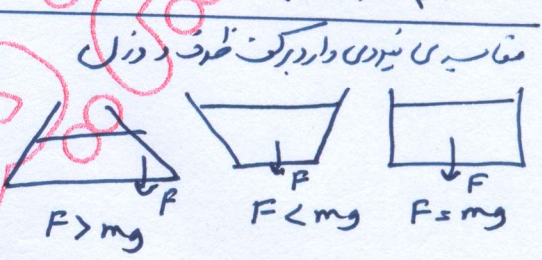 مقاسیه ی نیروی وارد بر کف ظرف و وزن
F F F
F > mg F < mg F = mg